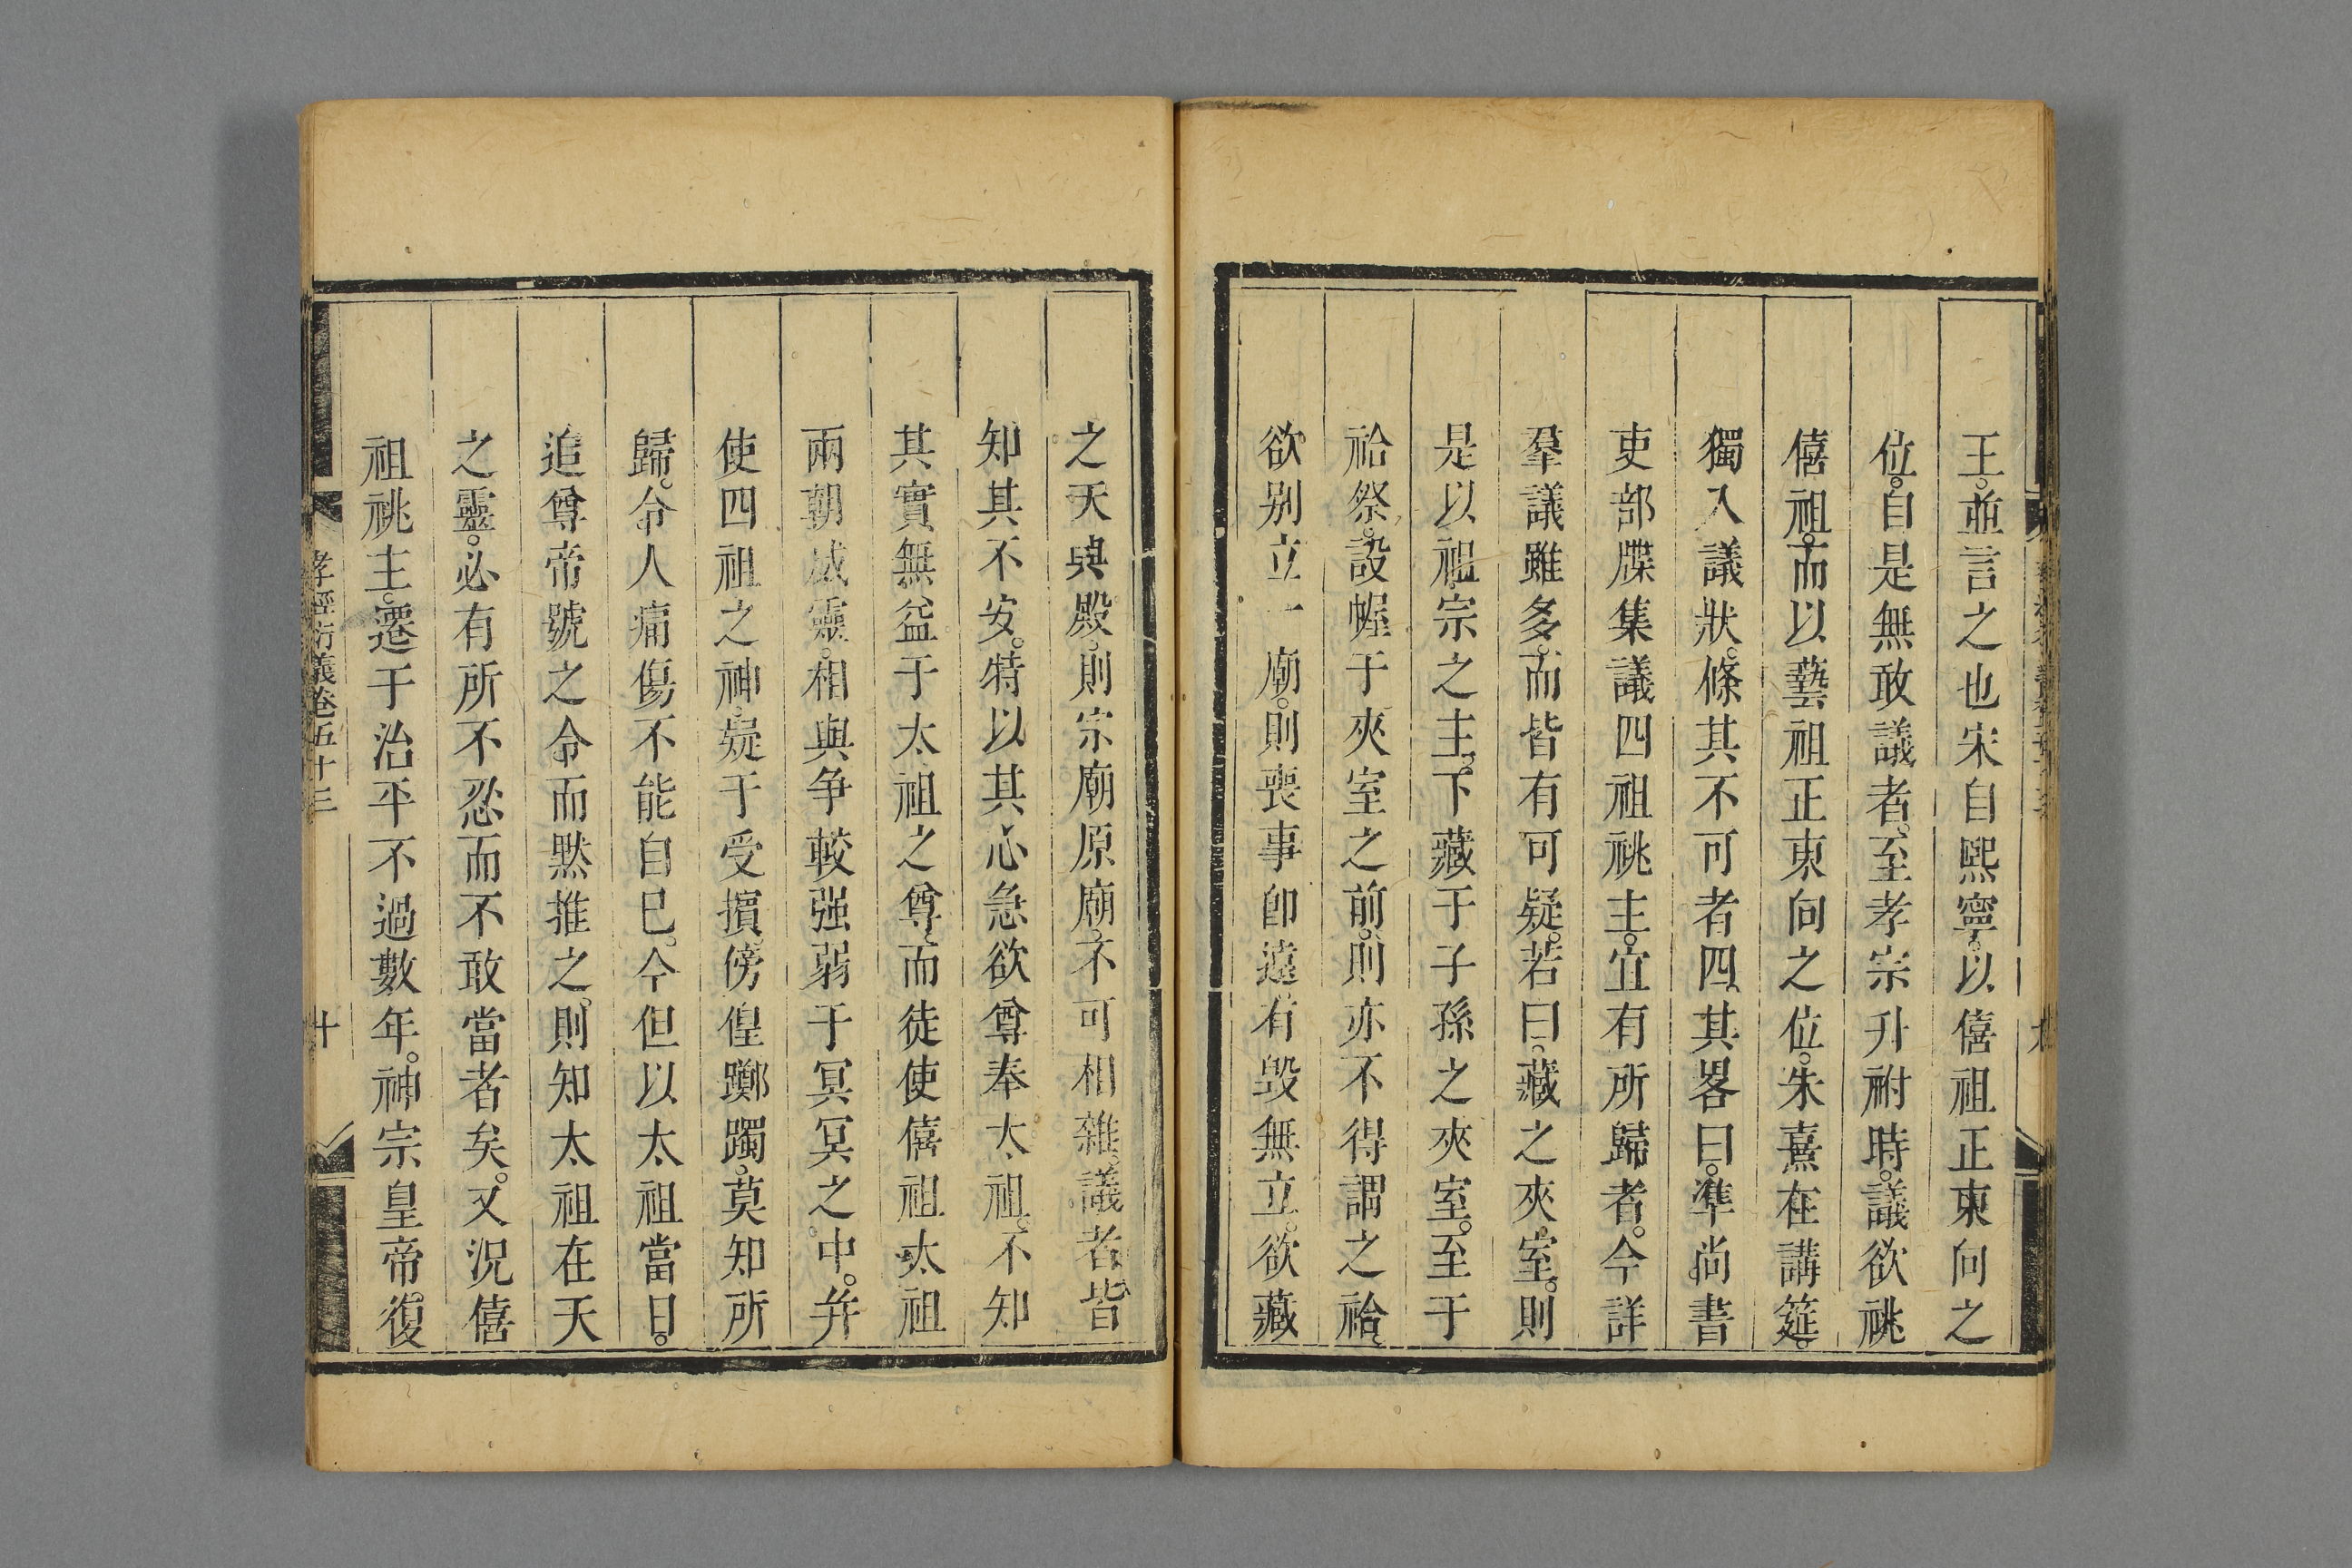 王。並言之也宋自熙寧。以僖祖正東向之
位。自是無敢議者。至孝宗升祔時。議欲祧
僖祖。而以藝祖正東向之位。朱熹在講筵。
獨入議狀。條其不可者四。其畧曰。準尚書
吏部牒集議四祖祧主。宜有所歸者。今詳
羣議雖多。而皆有可疑。若曰。藏之夾室。則
是以祖宗之主。下藏于子孫之夾室。至于
祫祭。設幄于夾室之前。則亦不得謂之祫。
欲别立一廟。則喪事卽遠。有毀無立。欲藏
之天與殿。則宗廟原廟。不可相雜。議者皆
知其不安。特以其心急欲尊奉太祖。不知
其實無益于太祖之尊。而徒使僖祖太祖
兩朝威靈。相與爭較强弱于冥冥之中。并
使四祖之神。疑于受擯。傍徨躑躅。莫知所
歸。令人痛傷不能自已。今但以太祖當日。
追尊帝號之令而黙推之。則知太祖在天
之靈。必有所不忍而不敢當者矣。又况僖
祖祧主。遷于治平不過數年。神宗皇帝。復
孝經衍義卷五十三
十